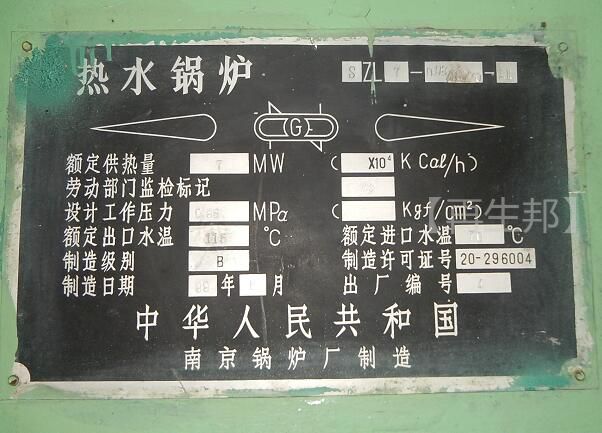 热水锅炉 SZL7-
G
额定供热量 7 MW ( X10⁴ K Cal/h)
劳动部门监检标记
设计工作压力 MPa ( Kgf/cm²)
额定出口水温 115 °C 额定进口水温 70 °C
制造级别 B 制造许可证号 20-296004
制造日期 年 月 出厂编号
中华人民共和国
南京锅炉厂制造
【再生邦】